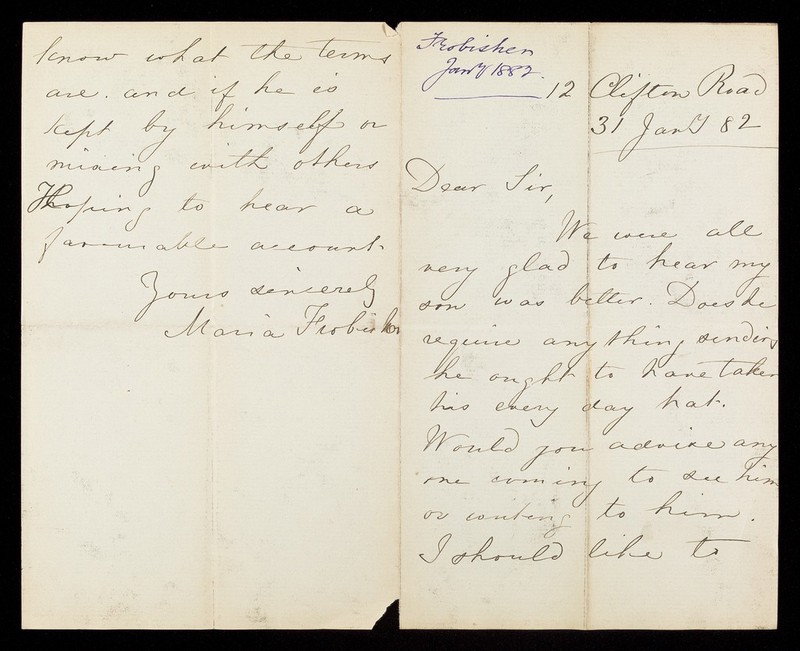 Frobisher
Jany 1882.
12 Clifton Road
31 Jany 82
Dear Sir,
We were all
very glad to hear my
son was better. Does he
require anything sending
he ought to have taken
his every day hat.
Would you advise any
one coming to see him
or writing to him.
I should like to
know what the terms
are. and if he is
kept by himself or
mixing with others
Hoping to hear a
favourable account.
Yours sincerely
Maria Frobisher